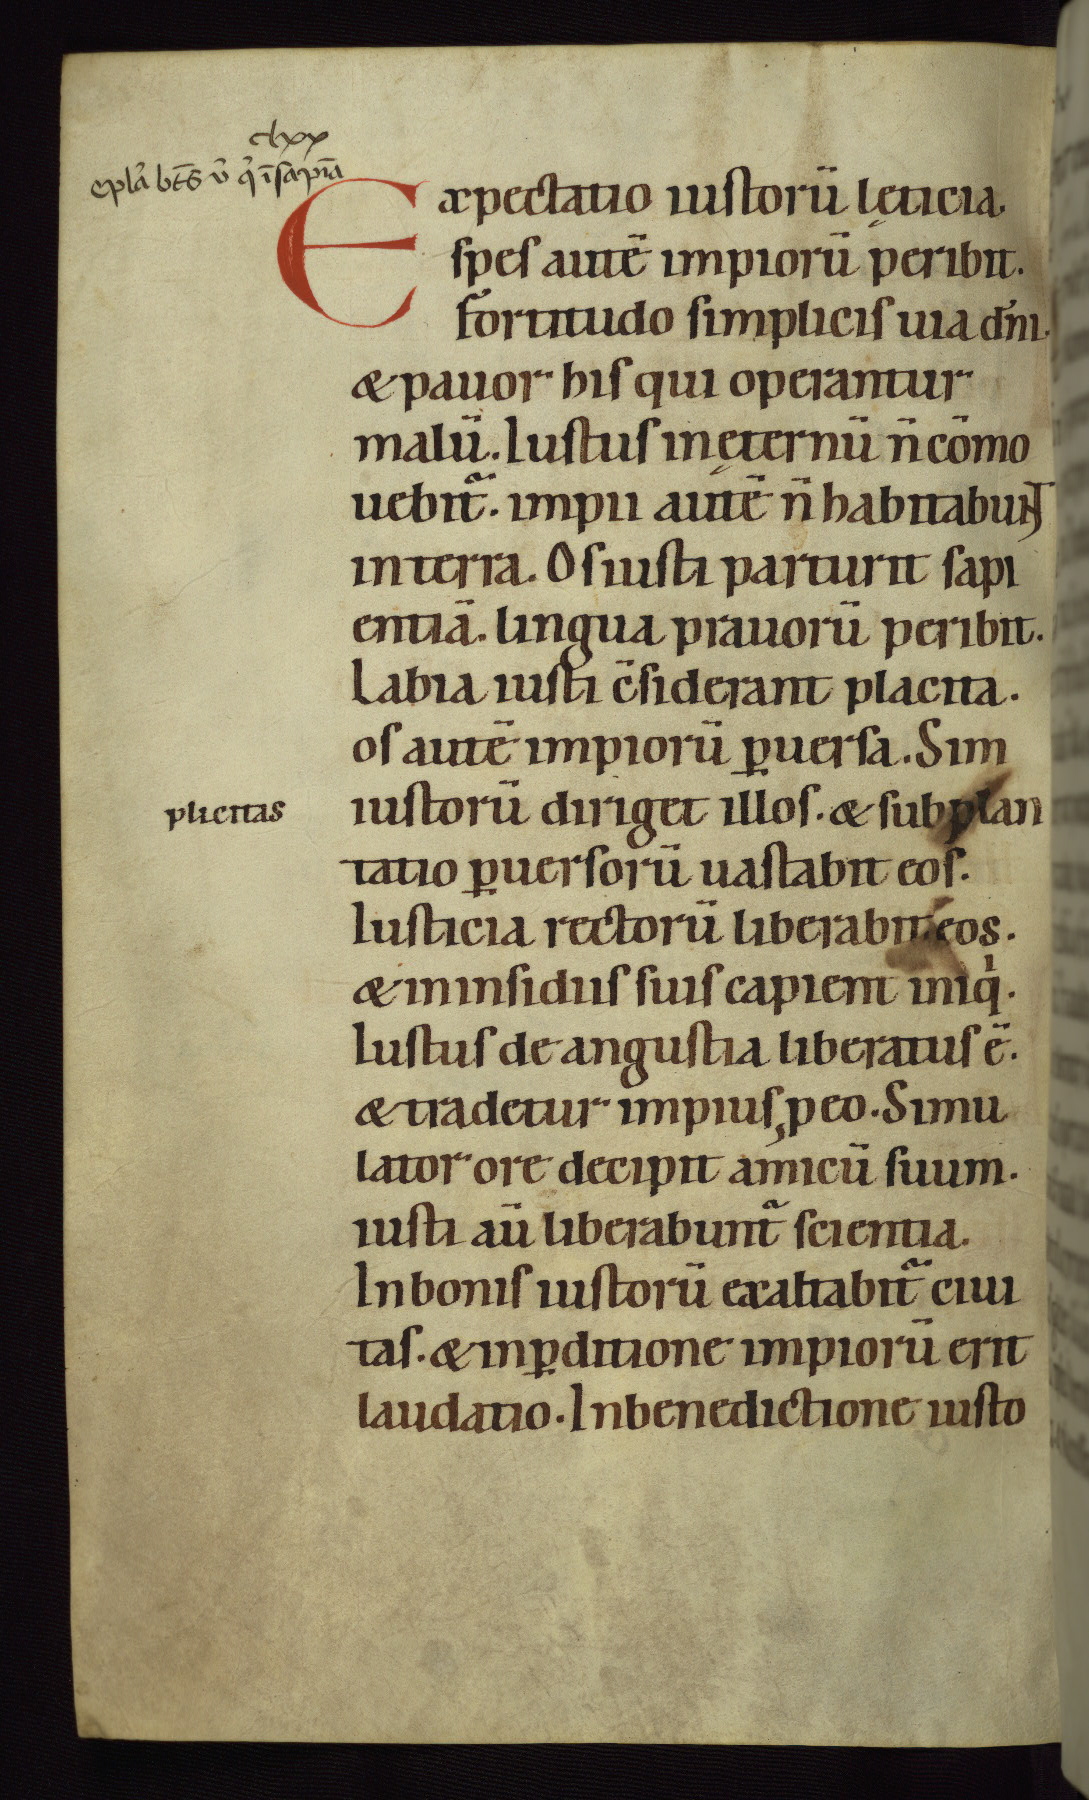 clxx
epła bt̄s v̄ q̇ ī sapīa
Expectatio iustorū lęticia.
spes autē impiorū peribit.
fortitudo simplicis uia dn̄i.
& pauor his qui operantur
malū. Iustus in ęternū n̄ cōmo
uebit᷑. impii autē n̄ habitabunt
in terra. Os iusti parturit sapi
entiā. lingua prauorū peribit.
Labia iusti c̄siderant placita.
os autē impiorū ꝑuersa. Sim
plicitas iustorū diriget illos. & subplan
tatio ꝑuersorū uastabit eos.
Iusticia rectorū liberabit eos.
& in insidiis suis capient iniqi.
Iustus de angustia liberatus ē.
& tradetur impius, p eo. Simu
lator ore decipit amicū suum.
iusti aū liberabunt᷑ scientia.
In bonis iustorū exaltabit᷑ ciui
tas. & in ꝑditione impiorū erit
laudatio. In benedictione iusto